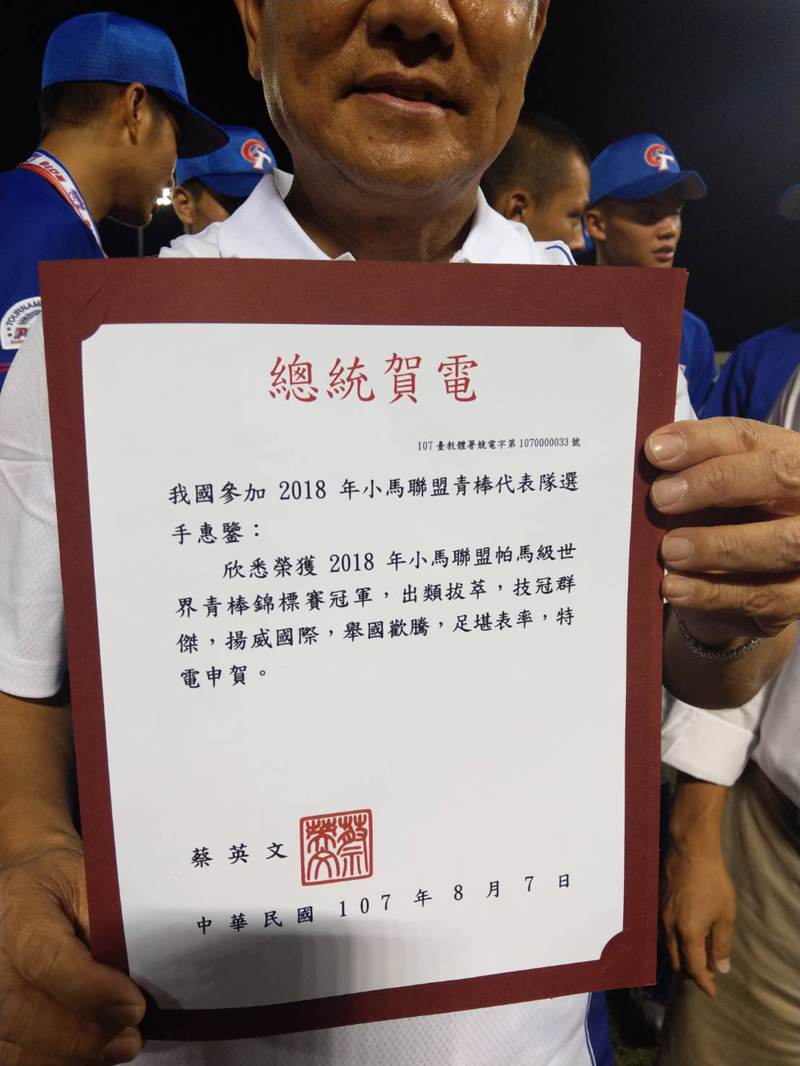 總統賀電
107臺教體署競電字第1070000033號
我國參加 2018 年小馬聯盟青棒代表隊選
手惠鑒：
欣悉榮獲 2018 年小馬聯盟帕馬級世
界青棒錦標賽冠軍，出類拔萃，技冠群
傑，揚威國際，舉國歡騰，足堪表率，特
電申賀。
蔡英文
中華民國 107 年 8 月 7 日
CT
CT